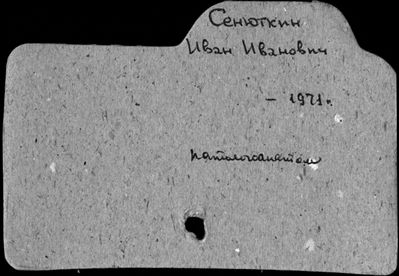 Сенюткин
Иван Иванович
- 1971г.
патологоанатом